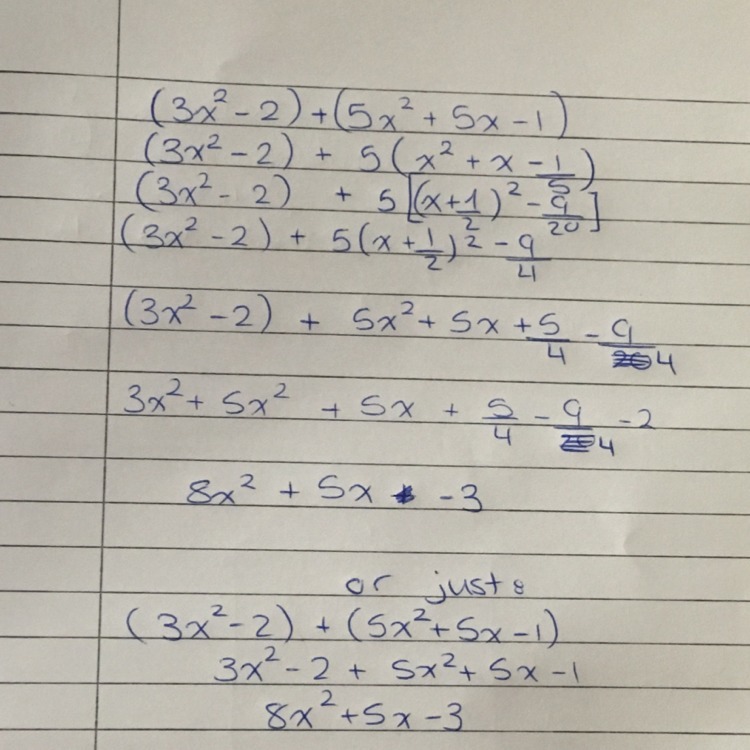 (3x² - 2) + (5x² + 5x - 1)
(3x² - 2) + 5(x² + x - 1/5)
(3x² - 2) + 5[(x + 1/2)² - 9/20]
(3x² - 2) + 5(x + 1/2)² - 9/4
(3x² - 2) + 5x² + 5x + 5/4 - 9/4
3x² + 5x² + 5x + 5/4 - 9/4 - 2
8x² + 5x - 3
or just:
(3x² - 2) + (5x² + 5x - 1)
3x² - 2 + 5x² + 5x - 1
8x² + 5x - 3